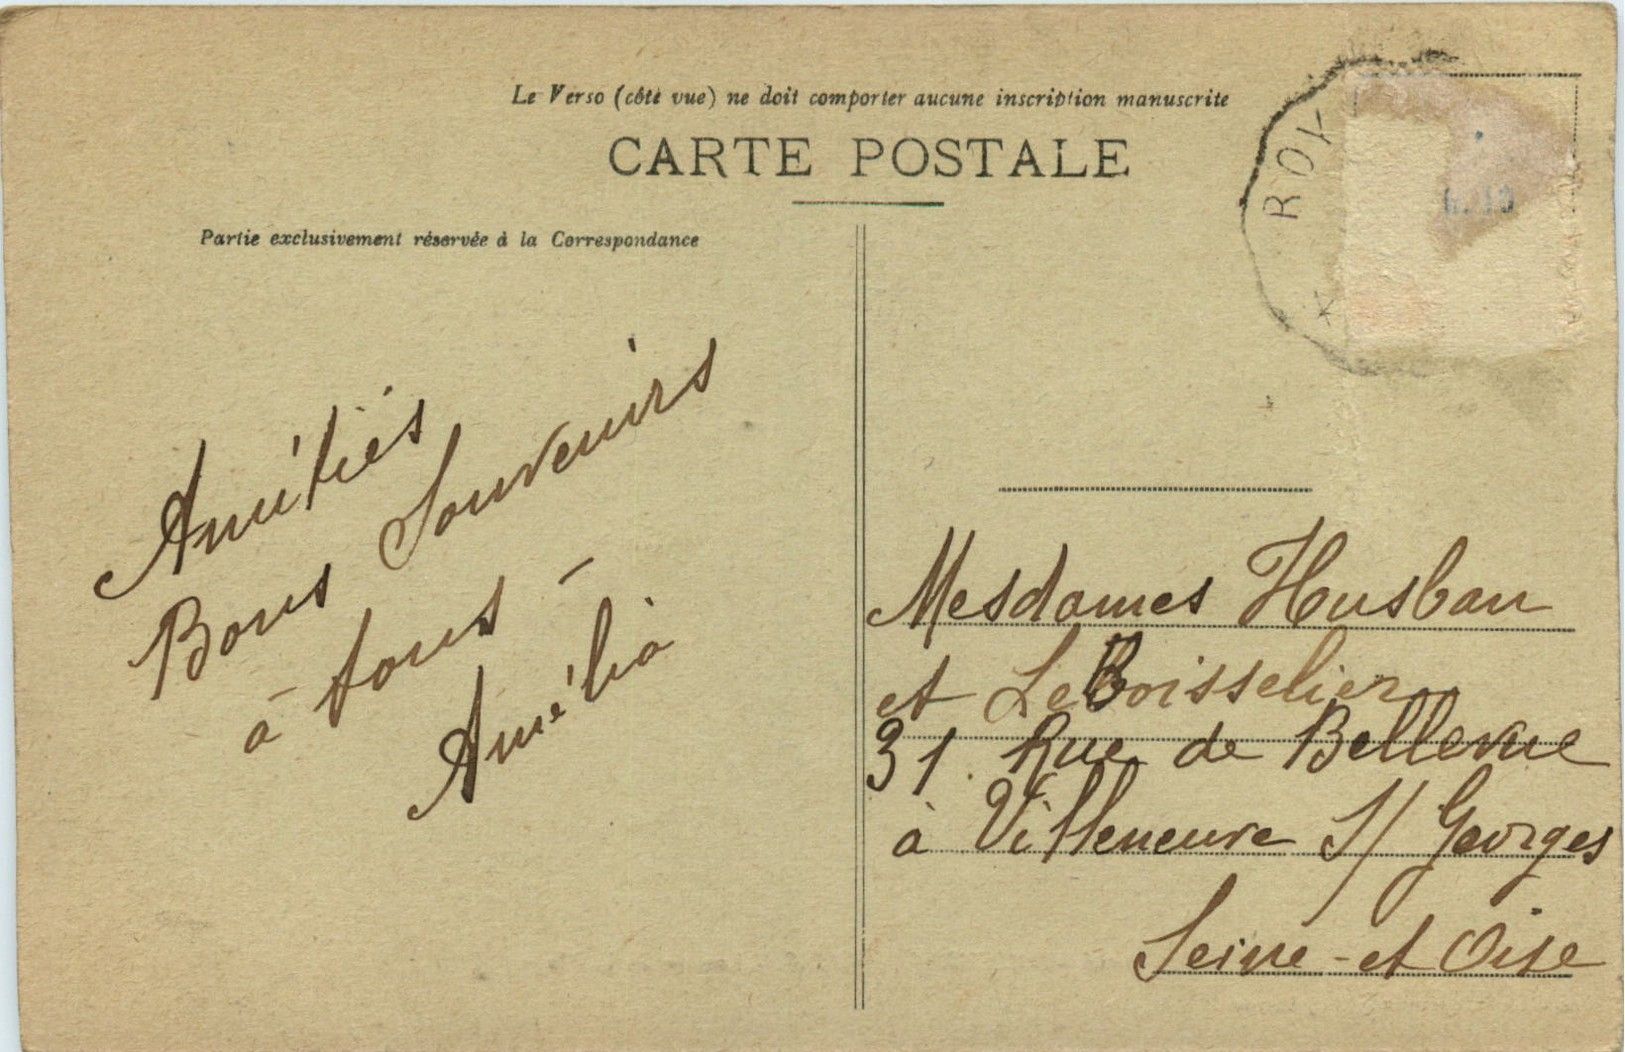 Le Verso (côté vue) ne doit comporter aucune inscription manuscrite
CARTE POSTALE
Partie exclusivement réservée à la Correspondance
ROY
Amitiés
Bons Souvenirs
à tous -
Amélia
Mesdames Husban
et LeBoisselier
31. Rue de Bellevue
à Villeneuve S/ Georges
Seine-et Oise